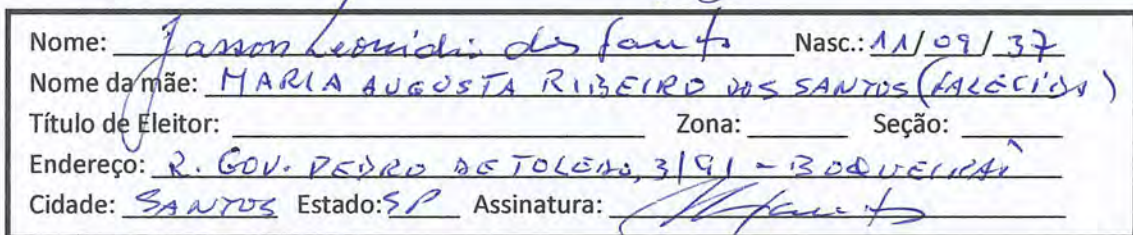 Nome: Jasson Leonidio dos Santos Nasc.: 11/09/37
Nome da mãe: MARIA AUGUSTA RIBEIRO DOS SANTOS (FALECIDA)
Título de Eleitor: Zona: Seção:
Endereço: R. GOV. PEDRO DE TOLEDO, 3/91 - BOQUEIRÃO
Cidade: SANTOS Estado: SP Assinatura: